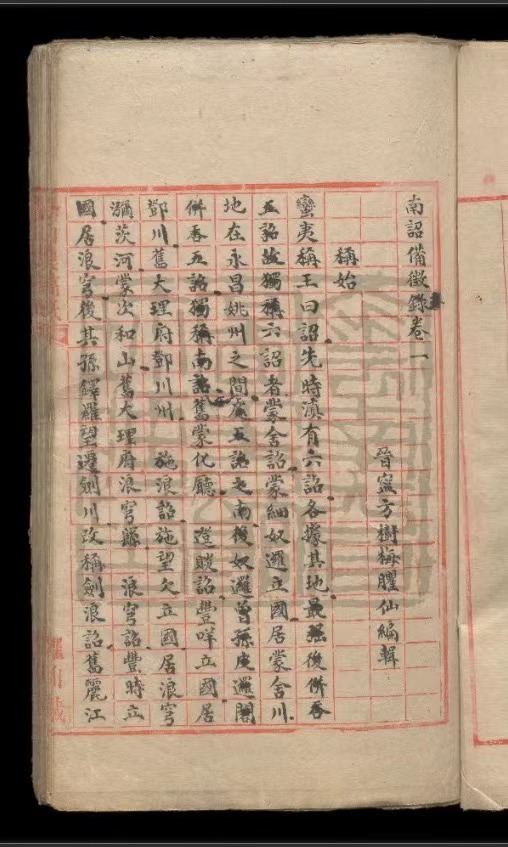 南詔備徵錄卷一
晉寧方樹梅臞仙編輯
稱始
蠻夷稱王曰詔先時滇有六詔各據其地最強後併吞
五詔故獨稱六詔者蒙舍詔蒙細奴邏立國居蒙舍川
地在永昌姚州之間居五詔之南後奴邏曾孫皮邏閣
併吞五詔獨稱南詔舊蒙化廳 澄賧詔豐咩立國居
鄧川舊大理府鄧川州 施浪詔施望欠立國居浪穹
瀰茨河蒙次和山舊大理府浪穹縣 浪穹詔豐時立
國居浪穹後其孫鐸羅望遷劍川改稱劍浪詔舊麗江